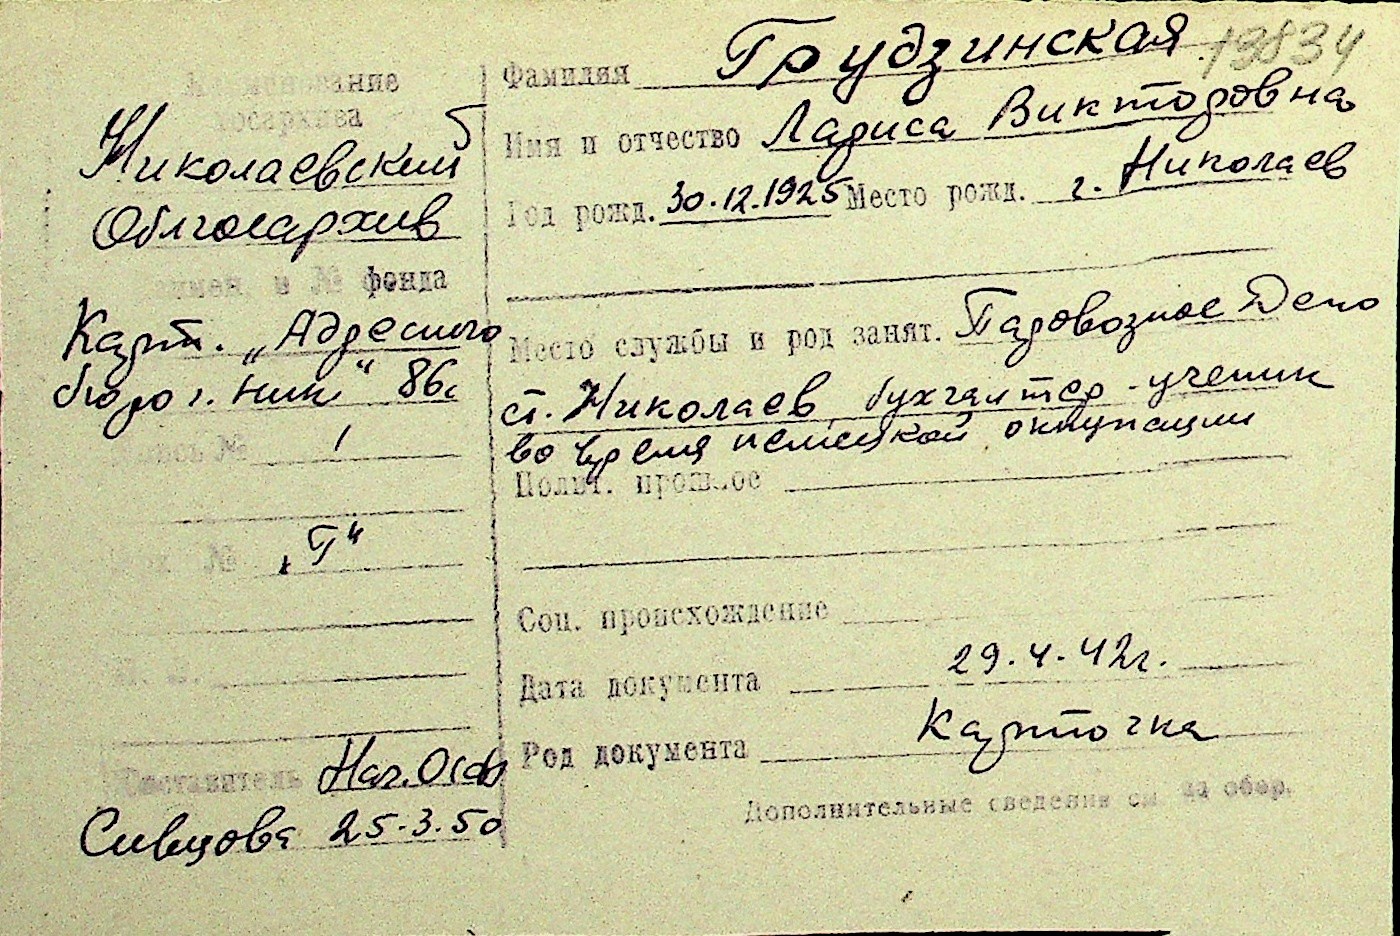 Наименование
госархива
Николаевский
Облгосархив
Наимен. и № фонда
Карт. „Адресного
бюро г. Ник“ 86с
Опись № 1
Арх. № „Г“
Составитель Нач. Осф
Сивцова 25-3.50
13834
Фамилия Грудзинская
Имя и отчество Лариса Викторовна
Год рожд. 30.12.1925 Место рожд. г. Николаев
Место службы и род занят. Паровозное Депо
ст. Николаев бухгалтер-ученик
во время немецкой оккупации
Полит. прошлое
Соц. происхождение
Дата документа 29.4.42г.
Род документа Карточка
Дополнительные сведения см. на обор.